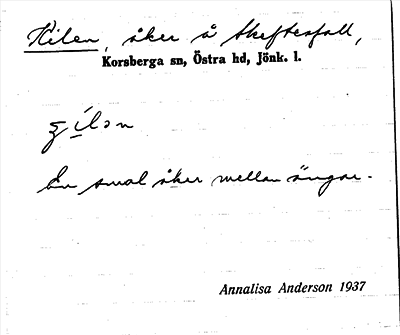 Kilen, åker å Skeftesfall,
Korsberga sn, Östra hd, Jönk. l.
En smal åker mellan ängar.
Annalisa Anderson 1937